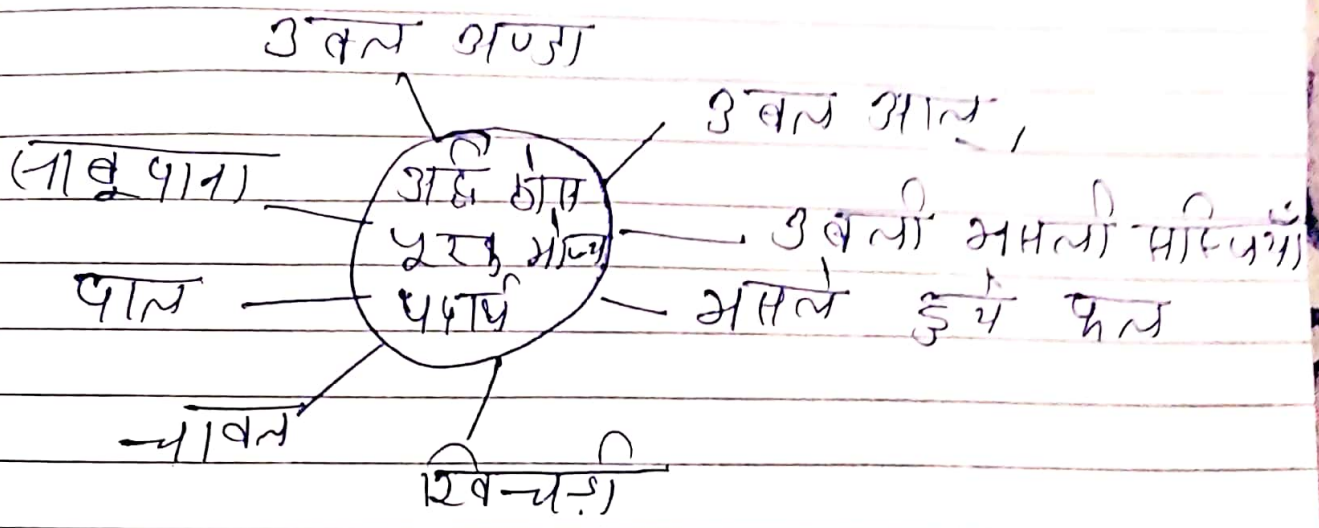 उबल अण्डा
उबल आलू,
साबू दाना
अर्द्ध ठोस
पूरक भोज्य
पदार्थ
उबली मसली सब्जियाँ
दाल
मसले हुये फल
चावल
खिचड़ी